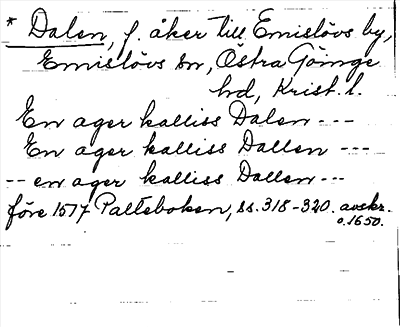 * Dalen, f. åker till Emislövs by,
Emislövs sn, Östra Göinge
hd, Krist. l.
En ager kalliss Dalen ---
En ager kalliss Dallen ---
-- en ager kalliss Dallen --
före 1577 Palteboken, ss. 318-320. avskr.
o. 1650.